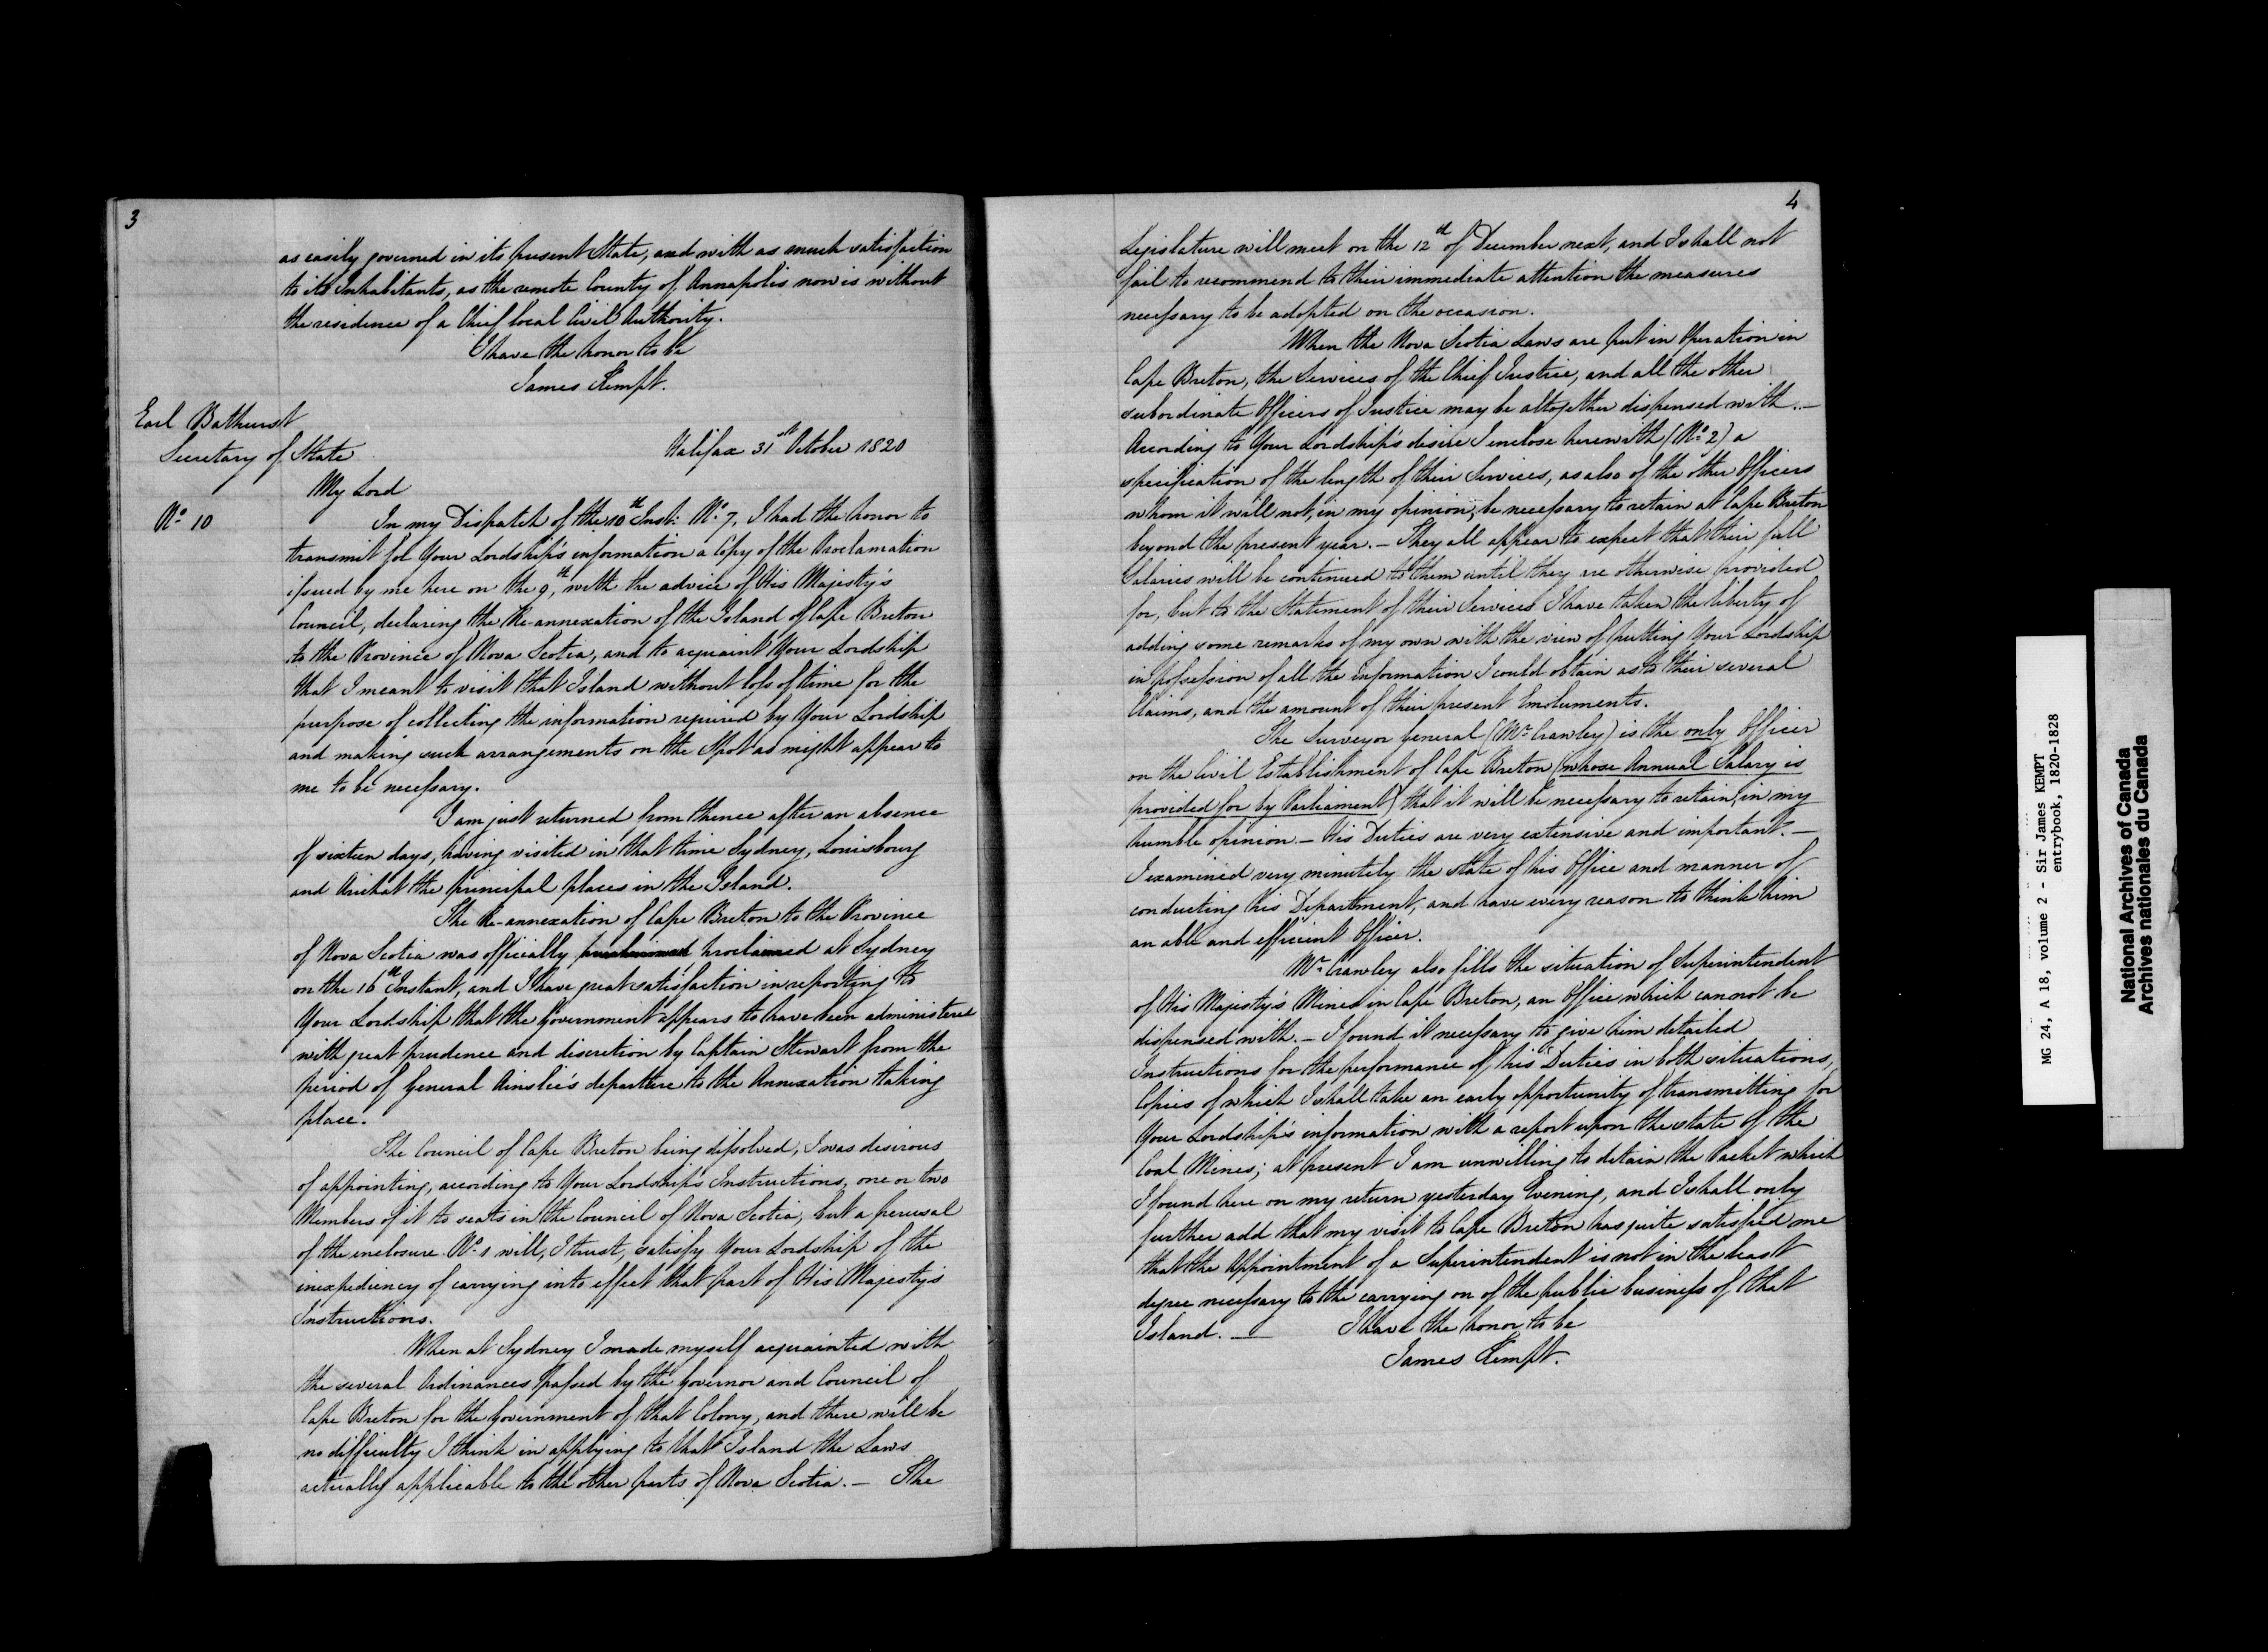 3
as easily governed in its present State, and with as much satisfaction
to its Inhabitants, as the remote County of Annapolis now is without
the residence of a Chief local Civil Authority.
I have the honor to be
James Kempt.
Earl Bathurst
Secretary of State
Halifax 31st October 1820
My Lord
No 10
In my Dispatch of the 10th Inst: No 7, I had the honor to
transmit for Your Lordship's information a Copy of the Proclamation
issued by me here on the 9th, with the advice of His Majesty's
Council, declaring the Re-annexation of the Island of Cape Breton
to the Province of Nova Scotia, and to acquaint Your Lordship
that I meant to visit that Island without loss of time for the
purpose of collecting the information required by Your Lordship
and making such arrangements on the Spot as might appear to
me to be necessary.
I am just returned from thence after an absence
of sixteen days, having visited in that time Sydney, Louisbourg
and Arichat the principal places in the Island.
The Re-annexation of Cape Breton to the Province
of Nova Scotia was officially proclaimed at Sydney
on the 16th Instant, and I have great satisfaction in reporting to
Your Lordship that the Government appears to have been administered
with great prudence and discretion by Captain Stewart from the
period of General Ainslie's departure to the Annexation taking
place.
The Council of Cape Breton being dissolved, I was desirous
of appointing, according to Your Lordship's Instructions, one or two
Members of it to seats in the Council of Nova Scotia, but a perusal
of the enclosure No 1 will, I trust, satisfy Your Lordship of the
inexpediency of carrying into effect that part of His Majesty's
Instructions.
When at Sydney I made myself acquainted with
the several Ordinances passed by the Governor and Council of
Cape Breton for the Government of that Colony, and there will be
no difficulty I think in applying to that Island the Laws
actually applicable to the other parts of Nova Scotia. — The
4
Legislature will meet on the 12th of December next, and I shall not
fail to recommend to their immediate attention the measures
necessary to be adopted on the occasion.
When the Nova Scotia Laws are put in Operation in
Cape Breton, the Services of the Chief Justice, and all the other
subordinate Officers of Justice may be altogether dispensed with. —
According to Your Lordship's desire I enclose herewith (No 2) a
specification of the length of their Services, as also of the other Officers
whom it will not, in my opinion, be necessary to retain at Cape Breton
beyond the present year. — They all appear to expect that their full
Salaries will be continued to them until they are otherwise provided
for, but to the Statement of their Services I have taken the liberty of
adding some remarks of my own with the view of putting Your Lordship
in possession of all the information I could obtain as to their several
Claims, and the amount of their present Emoluments.
The Surveyor General (Mr Crawley) is the only Officer
on the Civil Establishment of Cape Breton (whose Annual Salary is
provided for by Parliament) that it will be necessary to retain, in my
humble opinion — His Duties are very extensive and important. —
I examined very minutely the state of his Office and manner of
conducting his Department, and have every reason to think him
an able and efficient Officer.
Mr Crawley also fills the situation of Superintendent
of His Majesty's Mines in Cape Breton, an Office which cannot be
dispensed with. — I found it necessary to give him detailed
Instructions for the performance of his Duties in both situations,
Copies of which I shall take an early opportunity of transmitting for
Your Lordship's information with a report upon the state of the
Coal Mines; at present I am unwilling to detain the Packet which
I found here on my return yesterday Evening, and I shall only
further add that my visit to Cape Breton has quite satisfied me
that the Appointment of a Superintendent is not in the least
degree necessary to the carrying on of the public business of that
Island. — I have the honor to be
James Kempt.
MG 24, A 18, volume 2 - Sir James KEMPT
entrybook, 1820-1828
National Archives of Canada
Archives nationales du Canada